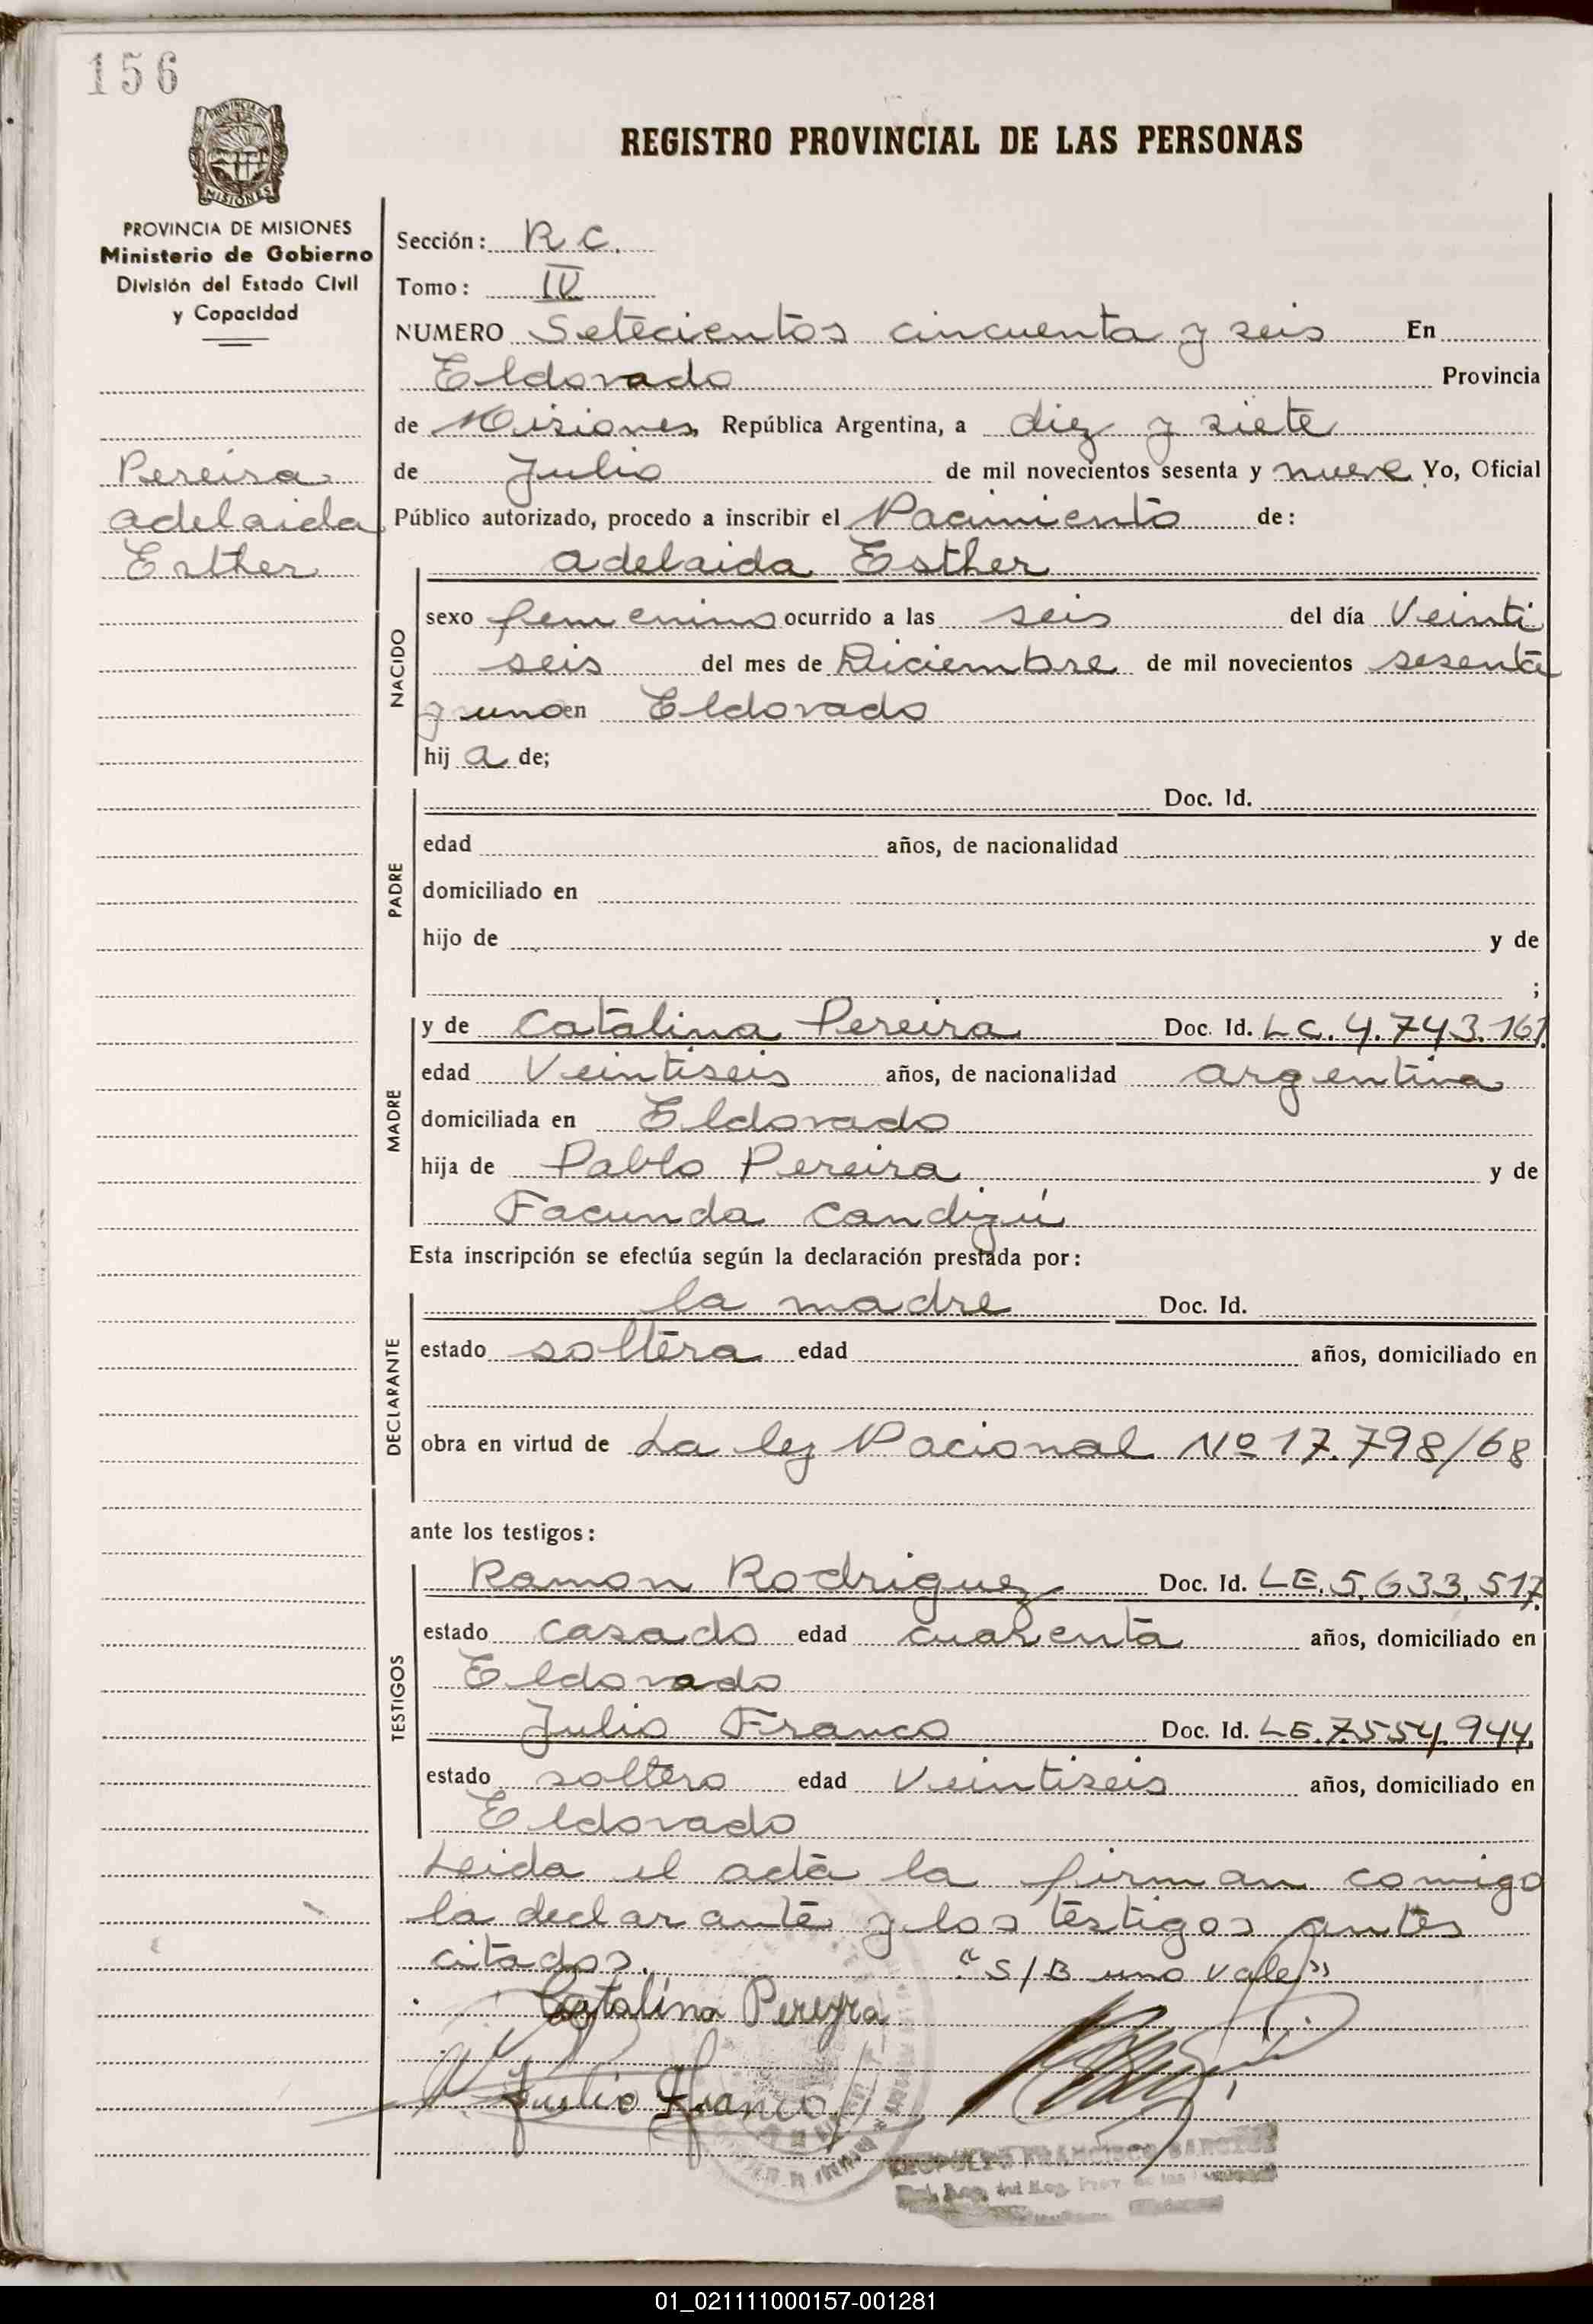 156
PROVINCIA DE
MISIONES
REGISTRO PROVINCIAL DE LAS PERSONAS
PROVINCIA DE MISIONES
Ministerio de Gobierno
División del Estado Civil
y Capacidad
Pereira
Adelaida
Esther
Sección: R.C.
Tomo: IV
NUMERO Setecientos cincuenta y seis En
Eldorado Provincia
de Misiones República Argentina, a diez y siete
de Julio de mil novecientos sesenta y nueve Yo, Oficial
Público autorizado, procedo a inscribir el Nacimiento de:
Adelaida Esther
NACIDO
sexo femenino ocurrido a las seis del día Veinti
seis del mes de Diciembre de mil novecientos sesenta
y uno en Eldorado
hij a de;
PADRE
Doc. Id.
edad años, de nacionalidad
domiciliado en
hijo de y de
;
MADRE
y de Catalina Pereira Doc. Id. L.C. 4.743.167
edad Veintiseis años, de nacionalidad argentina
domiciliada en Eldorado
hija de Pablo Pereira y de
Facunda Candizú
Esta inscripción se efectúa según la declaración prestada por:
DECLARANTE
la madre Doc. Id.
estado soltera edad años, domiciliado en
obra en virtud de La ley Nacional Nº 17.798/68
ante los testigos:
TESTIGOS
Ramon Rodriguez Doc. Id. LE. 5.633.517.
estado casado edad cuarenta años, domiciliado en
Eldorado
Julio Franco Doc. Id. LE. 7.554.944.
estado soltero edad Veintiseis años, domiciliado en
Eldorado
Leida el acta la firman comigo
la declarante y los testigos antes
citados. "S/B uno vale"
Catalina Pereyra
Julio Franco
FRANCISCO
01_021111000157-001281